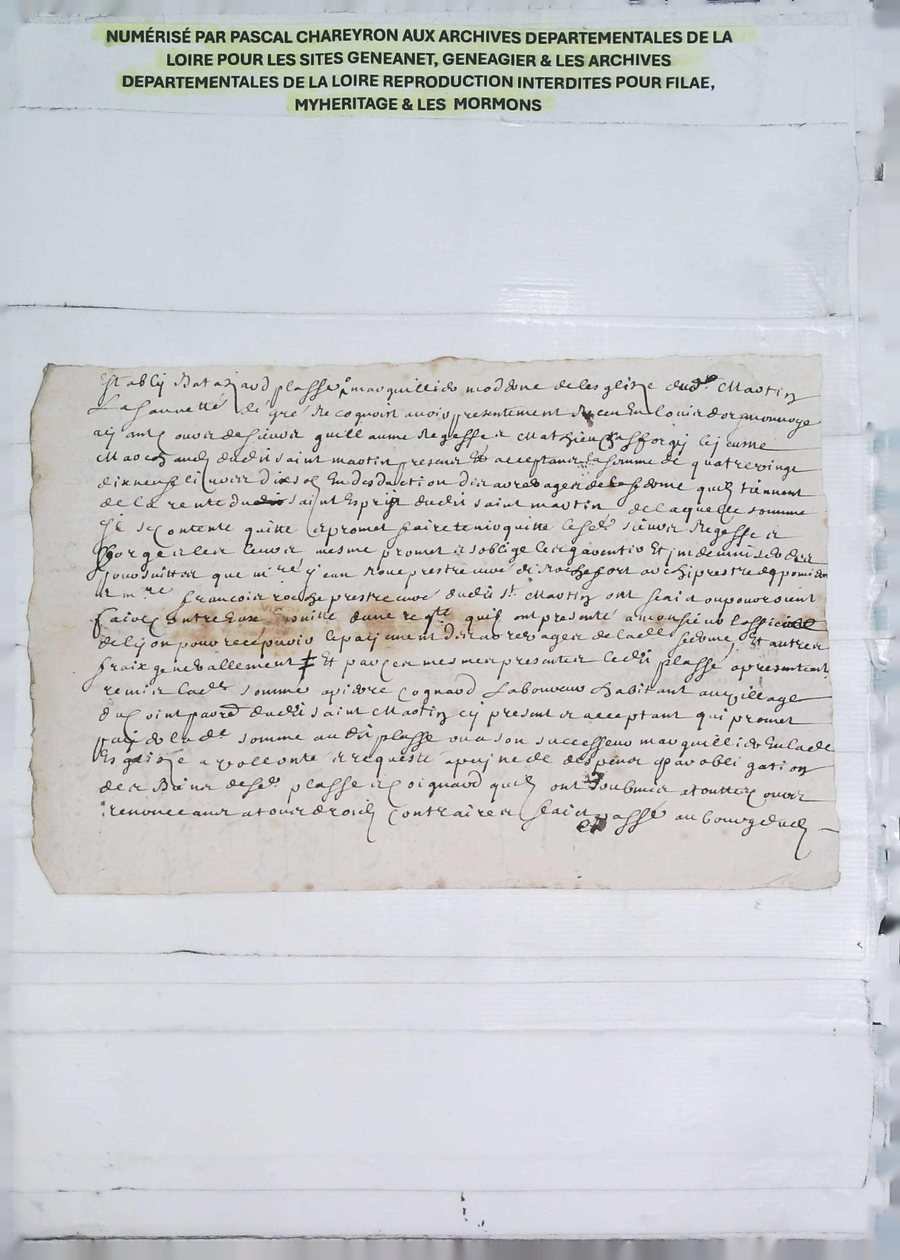 NUMÉRISÉ PAR PASCAL CHAREYRON AUX ARCHIVES DEPARTEMENTALES DE LA
LOIRE POUR LES SITES GENEANET, GENEAGIER & LES ARCHIVES
DEPARTEMENTALES DE LA LOIRE REPRODUCTION INTERDITES POUR FILAE,
MYHERITAGE & LES MORMONS
Estably plasse marguillier moderne de lesglize dud st Martin
La sauvetté de gré recognoist avoir presentement receu en louis dor et monnoye
ayant cours de sieurs guillaume regesse et Mathieu le jeusne
Marchands dudit saint martin presens et acceptans la somme de quatre vingt
dix neuf livres dix sol en desduction des arrerages de quilz tiennent
de la rente du saint Esprit dudit saint martin de laquelle somme
il se contente quitte et promet faire tenir quitte lesd sieurs regesse et
forge et les leurs mesme promet et soblige les garentir et indemniser des
poursuittes que mre prestre curé de rochefort archiprestre de pomiers
et mre francois roche prestre curé dudit st Martin ont fait ou pourroient
faire contre eux suitte dune reqte quils ont presenté a monsieur lofficial
de lyon pour recepvoir le payement des arrerages de lad et autres
fraix generallement Et par ces mesmes presentes ledit plasse a presentement
remis lad somme a pierre cognard laboureur habitant au village
du dudit saint Martin cy present et acceptant qui promet
lad somme audit plasse ou a son successeur marguillier en lade
Esglize a vollonté et requeste a peyne de despens par obligation
des biens desd plasse et coignard quilz ont soubmis a touttes cours
renonceans a tous droitz contraires fait et passé au bourg dud